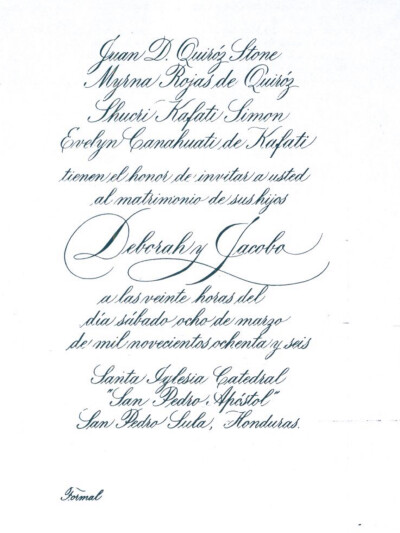 Juan D. Quiróz Stone
Myrna Rojas de Quiróz
Shucri Kafati Simon
Evelyn Canahuati de Kafati
tienen el honor de invitar a usted
al matrimonio de sus hijos
Deborah y Jacobo
a las veinte horas del
día sábado ocho de marzo
de mil novecientos ochenta y seis
Santa Iglesia Catedral
"San Pedro Apóstol"
San Pedro Sula, Honduras.
Formal